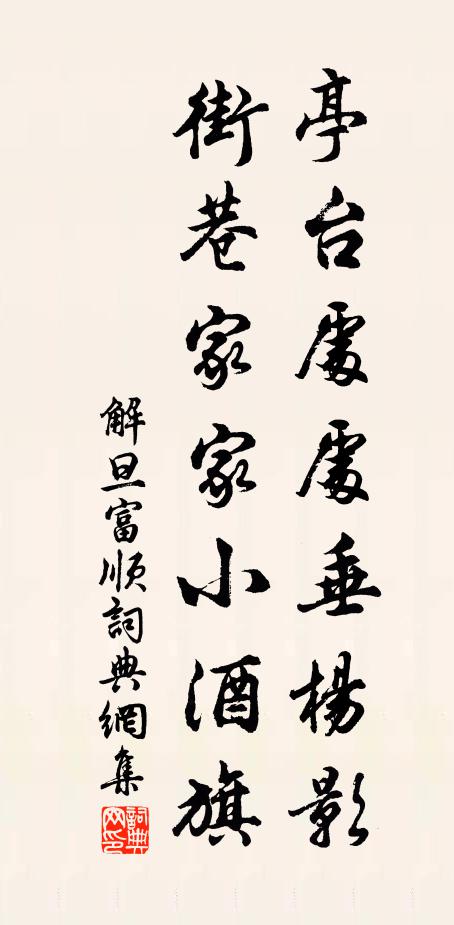 亭台處處垂楊影
街巷家家小酒旗
解旦富順詞典網集
詞典網印